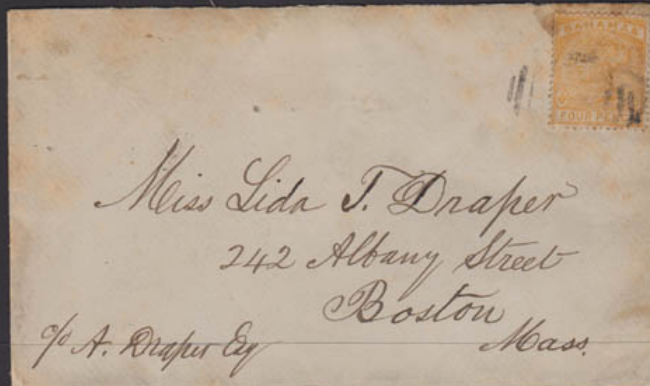 BAHAMAS
FOUR PE
Miss Lida T. Draper
242 Albany Street
Boston
Mass.
c/o A. Draper Esq